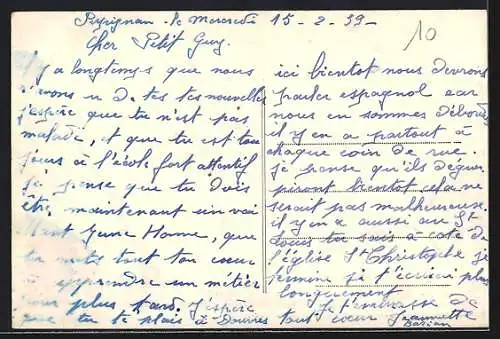 Perpignan - le Mercredi 15 - 2 - 39 -
10
Cher Petit Guy.
Il y a longtemps que nous
n'avons u de tes nouvelles
j'espère que tu n'est pas
malade, et que tu est tou
jours à l'école fort attentif
je pense que tu dois
être maintenant un vrai
Petit Jeune Homme, que
tu mets tout ton coeur
à apprendre un métier
pour plus tard. J'espère
que tu te plais à Douvres
ici bientot nous devrons
parler espagnol car
nous en sommes débordé
il y en a partout à
chaque coin de rue.
je pense qu'ils déguer
piront bientot cela ne
serait pas malheureuse.
il y en a aussi au St
Louis tu sais à coté de
l'église St Christophe je
termine je t'écrirai plus
longuement
Je t'embrasse de
tout coeur Jeannette